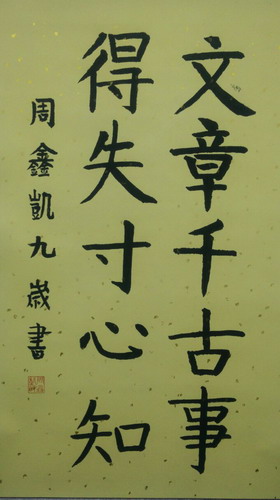 文章千古事
得失寸心知
周鑫凱九歲書